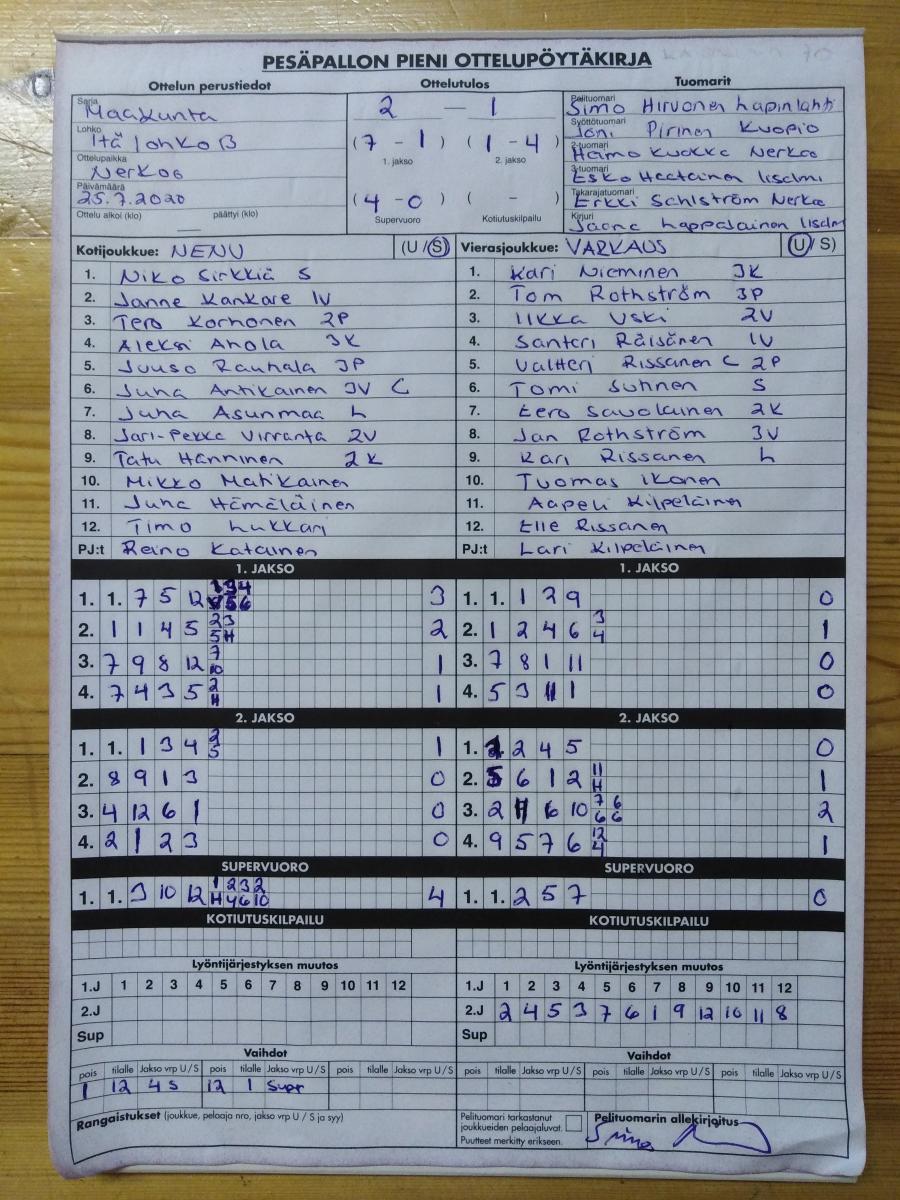 PESÄPALLON PIENI OTTELUPÖYTÄKIRJA
Ottelun perustiedot Ottelutulos Tuomarit
Sarja Maakunta
Lohko Itä lohko B
Ottelupaikka Nerkoo
Päivämäärä 25.7.2020
Ottelu alkoi (klo) päättyi (klo)
2 — 1
(7 - 1) (1 - 4)
1. jakso 2. jakso
(4 - 0) ( - )
Supervuoro Kotiutuskilpailu
Pelituomari Simo Hirvonen Lapinlahti
Syöttötuomari Joni Pirinen Kuopio
2-tuomari Kuokka Nerkoo
3-tuomari Esko Iisalmi
Takarajatuomari Erkki Sahlström Nerkoo
Kirjuri Lappalainen Iisalmi
Kotijoukkue: NENU (U / S) Vierasjoukkue: VARKAUS (U / S)
1. Niko Sirkkiä S 1. Kari Nieminen 3K
2. Janne Kankare 1V 2. Tom Rothström 3P
3. Tero Korhonen 2P 3. Ilkka Uski 2V
4. Aleksi Ahola 3K 4. Santeri Räisänen 1V
5. Juuso Rauhala 3P 5. Valtteri Rissanen C 2P
6. Juha Antikainen 3V C 6. Tomi Suhnen S
7. Juha Asunmaa L 7. Eero Savolainen 2K
8. Jari-Pekka Virranta 2V 8. Jan Rothström 3V
9. Tatu Hänninen 2K 9. Kari Rissanen L
10. Mikko Matikainen 10. Tuomas Ikonen
11. Juha Hämäläinen 11. Aapeli Kilpeläinen
12. Timo Lukkari 12. Elle Rissanen
PJ:t Reino Katainen PJ:t Lari Kilpeläinen
1. JAKSO 1. JAKSO
1. 1. 7 5 12 3 1. 1. 1 2 9 0
2. 1 1 4 5 2 3 5 H 2 2. 1 2 4 6 3 4 1
3. 7 9 8 12 7 10 1 3. 7 8 1 11 0
4. 7 4 3 5 2 H 1 4. 5 3 1 0
2. JAKSO 2. JAKSO
1. 1. 1 3 4 2 5 1 1. 2 4 5 0
2. 8 9 1 3 0 2. 5 6 1 2 11 H 1
3. 4 12 6 1 0 3. 2 H 6 10 7 6 6 6 2
4. 2 1 2 3 0 4. 9 5 7 6 12 4 1
SUPERVUORO SUPERVUORO
1. 1. 3 10 12 1 2 3 2 H 4 6 10 4 1. 1. 2 5 7 0
KOTIUTUSKILPAILU KOTIUTUSKILPAILU
Lyöntijärjestyksen muutos Lyöntijärjestyksen muutos
1.J 1 2 3 4 5 6 7 8 9 10 11 12 1.J 1 2 3 4 5 6 7 8 9 10 11 12
2.J 2.J 2 4 5 3 7 6 1 9 12 10 11 8
Sup Sup
Vaihdot Vaihdot
pois tilalle Jakso vrp U / S pois tilalle Jakso vrp U / S pois tilalle Jakso vrp U / S pois tilalle Jakso vrp U / S pois tilalle Jakso vrp U / S pois tilalle Jakso vrp U / S
1 12 4 S 12 1 Super
Rangaistukset (joukkue, pelaaja nro, jakso vrp U / S ja syy)
Pelituomari tarkastanut joukkueiden pelaajaluvat.
Puutteet merkitty erikseen.
Pelituomarin allekirjoitus
Simo